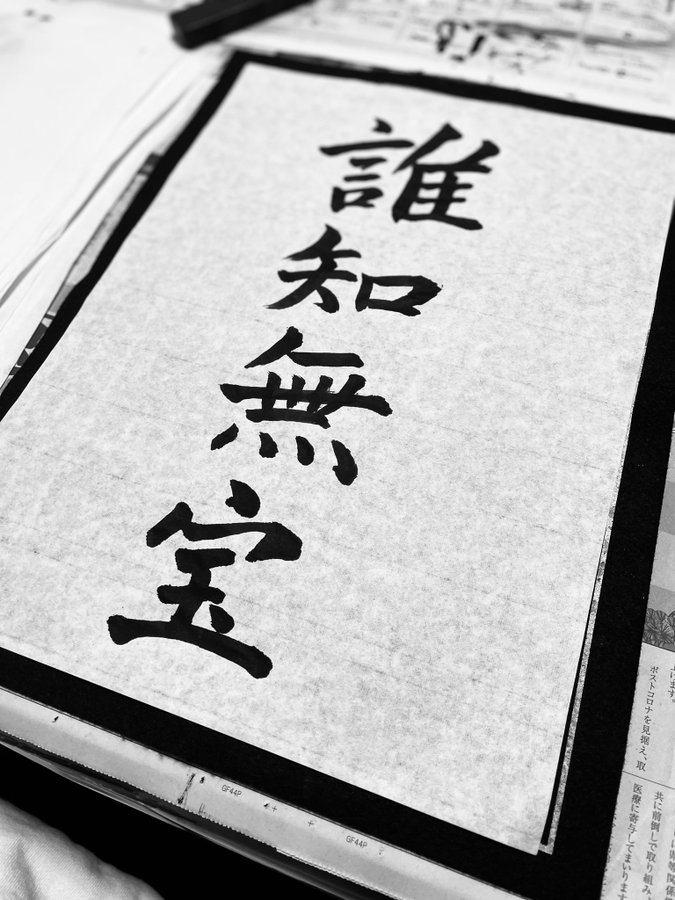 誰知無宝
GF44P
GF44P
ポストコロナを見据え、取
共に前倒しで取り組み、
医療に寄与してまいります